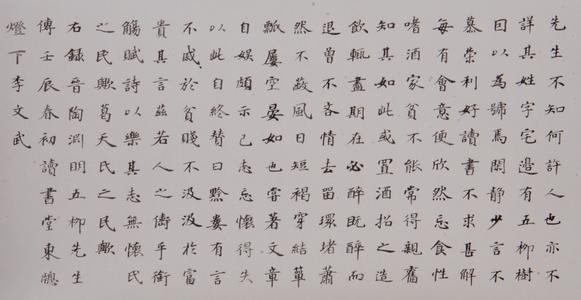 先生不知何許人也亦不
詳其姓字宅邊有五柳樹
因以為號焉閑靜少言不
慕榮利好讀書不求甚解
每有會意便欣然忘食性
嗜酒家貧不能常得親舊
知其如此或置酒招之造
飲輒盡期在必醉既醉而
退曾不吝情去留環堵蕭
然不蔽風日短褐穿結簞
瓢屢空晏如也嘗著文章
自娛頗示己志忘懷得失
以此自終贊曰黔婁有言
不戚於貧賤不汲汲於富
貴其言茲若人之儔乎銜
觴賦詩以樂其志無懷氏
之民歟葛天氏之民歟
右錄晉陶淵明五柳先生
傳壬辰春初讀書堂東牕
燈下李文武